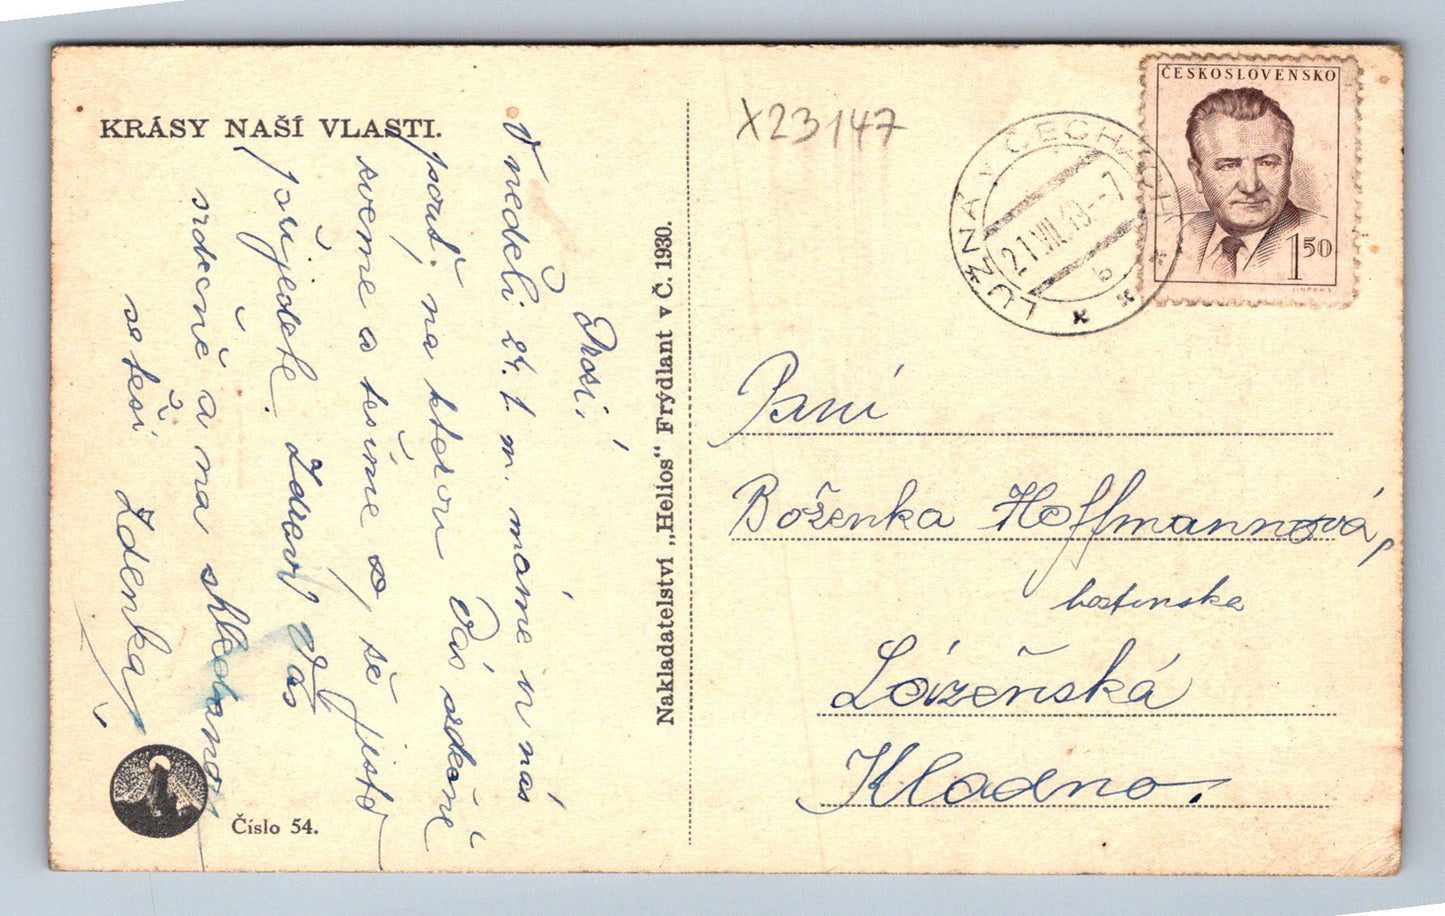 KRÁSY NAŠÍ VLASTI.
Drazí,
V neděli 24. t. m. máme u nás
pouť, na kterou Vás srdečně
zveme a těšíme se, že jistě
přijedete. Zdraví Vás
srdečně a na shledanou
se těší Zdenka
Číslo 54.
Nakladatelství „Helios“ Frýdlant v Č. 1930.
X23147
LUŽNÁ V ČECHÁCH
21.VII.49.--7
b
ČESKOSLOVENSKO
1.50
Paní
Boženka Hoffmannová,
hostinská
Lázeňská
Kladno.